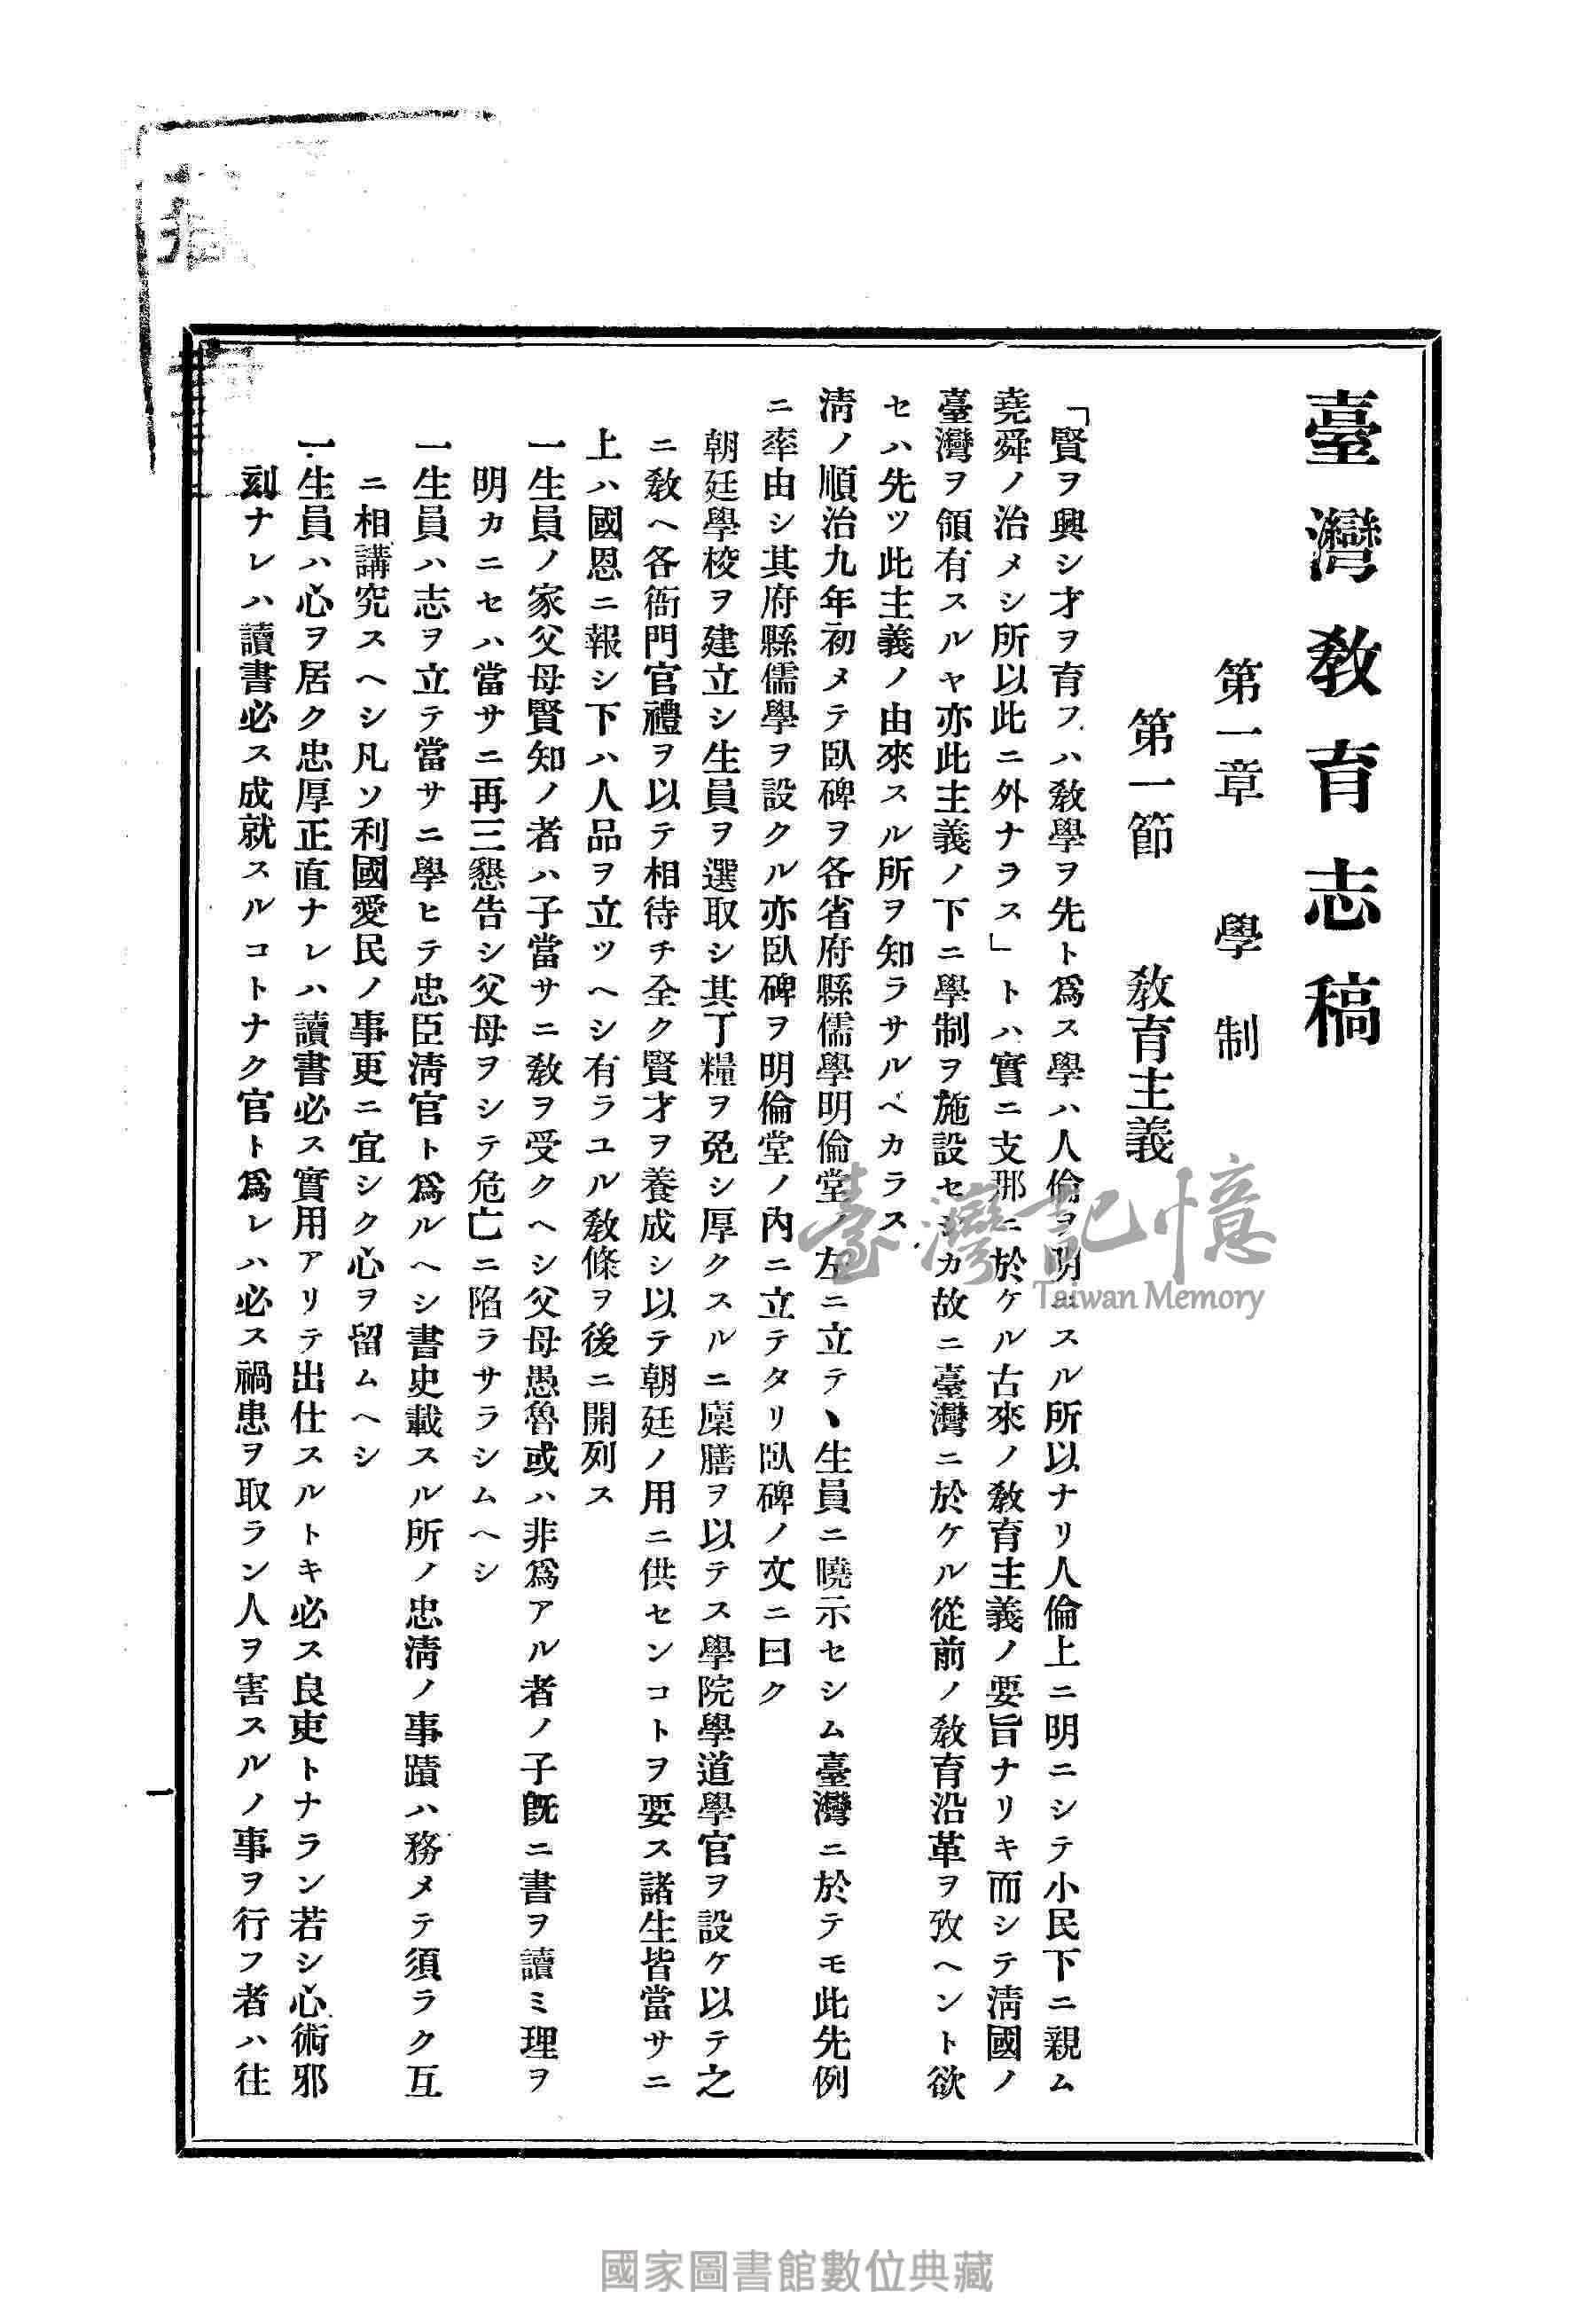 臺灣敎育志稿
第一章　學　制
第一節　敎育主義
「賢ヲ興シ才ヲ育フハ敎學ヲ先ト爲ス學ハ人倫ヲ明ニスル所以ナリ人倫上ニ明ニシテ小民下ニ親ム
堯舜ノ治メシ所以此ニ外ナラス」トハ實ニ支那ニ於ケル古來ノ敎育主義ノ要旨ナリキ而シテ淸國ノ
臺灣ヲ領有スルヤ亦此主義ノ下ニ學制ヲ施設セシカ故ニ臺灣ニ於ケル從前ノ敎育沿革ヲ攷ヘント欲
セハ先ツ此主義ノ由來スル所ヲ知ラサルベカラス
淸ノ順治九年初メテ臥碑ヲ各省府縣儒學明倫堂ノ左ニ立テヽ生員ニ曉示セシム臺灣ニ於テモ此先例
ニ率由シ其府縣儒學ヲ設クル亦臥碑ヲ明倫堂ノ內ニ立テタリ臥碑ノ文ニ曰ク
朝廷學校ヲ建立シ生員ヲ選取シ其丁糧ヲ免シ厚クスルニ廩膳ヲ以テス學院學道學官ヲ設ケ以テ之
ニ敎ヘ各衙門官禮ヲ以テ相待チ全ク賢才ヲ養成シ以テ朝廷ノ用ニ供センコトヲ要ス諸生皆當サニ
上ハ國恩ニ報シ下ハ人品ヲ立ツヘシ有ラユル敎條ヲ後ニ開列ス
一生員ノ家父母賢知ノ者ハ子當サニ敎ヲ受クヘシ父母愚魯或ハ非爲アル者ノ子旣ニ書ヲ讀ミ理ヲ
明カニセハ當サニ再三懇告シ父母ヲシテ危亡ニ陷ラサラシムヘシ
一生員ハ志ヲ立テ當サニ學ヒテ忠臣淸官ト爲ルヘシ書史載スル所ノ忠淸ノ事蹟ハ務メテ須ラク互
ニ相講究スヘシ凡ソ利國愛民ノ事更ニ宜シク心ヲ留ムヘシ
一生員ハ心ヲ居ク忠厚正直ナレハ讀書必ス實用アリテ出仕スルトキ必ス良吏トナラン若シ心術邪
刻ナレハ讀書必ス成就スルコトナク官ト爲レハ必ス禍患ヲ取ラン人ヲ害スルノ事ヲ行フ者ハ往
一
臺灣記憶
Taiwan Memory
國家圖書館數位典藏